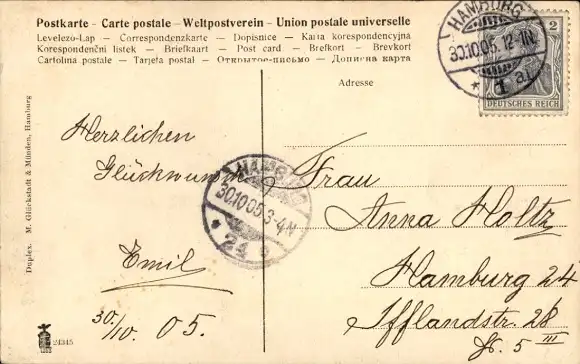 Postkarte – Carte postale – Weltpostverein – Union postale universelle
Levelező-Lap — Correspondenzkarte — Dopisnice — Karta korespondencyjna
Korespondenční lístek — Briefkaart — Post card — Brefkort — Brevkort
Cartolina postale — Tarjeta postal — Открытое-письмо — Дописна карта
Adresse
HAMBURG
30.10.05. 12-1N.
* 1 a.
2
DEUTSCHES REICH
Herzlichen
Glückwunsch
Emil
30/10. 05.
HAMBURG
30.10.05. 3-4N
* 24
Frau
Anna Holtz
Hamburg 24
Ifflandstr. 28
Hs. 5 III
Duplex. M. Glückstadt & Münden, Hamburg
24345